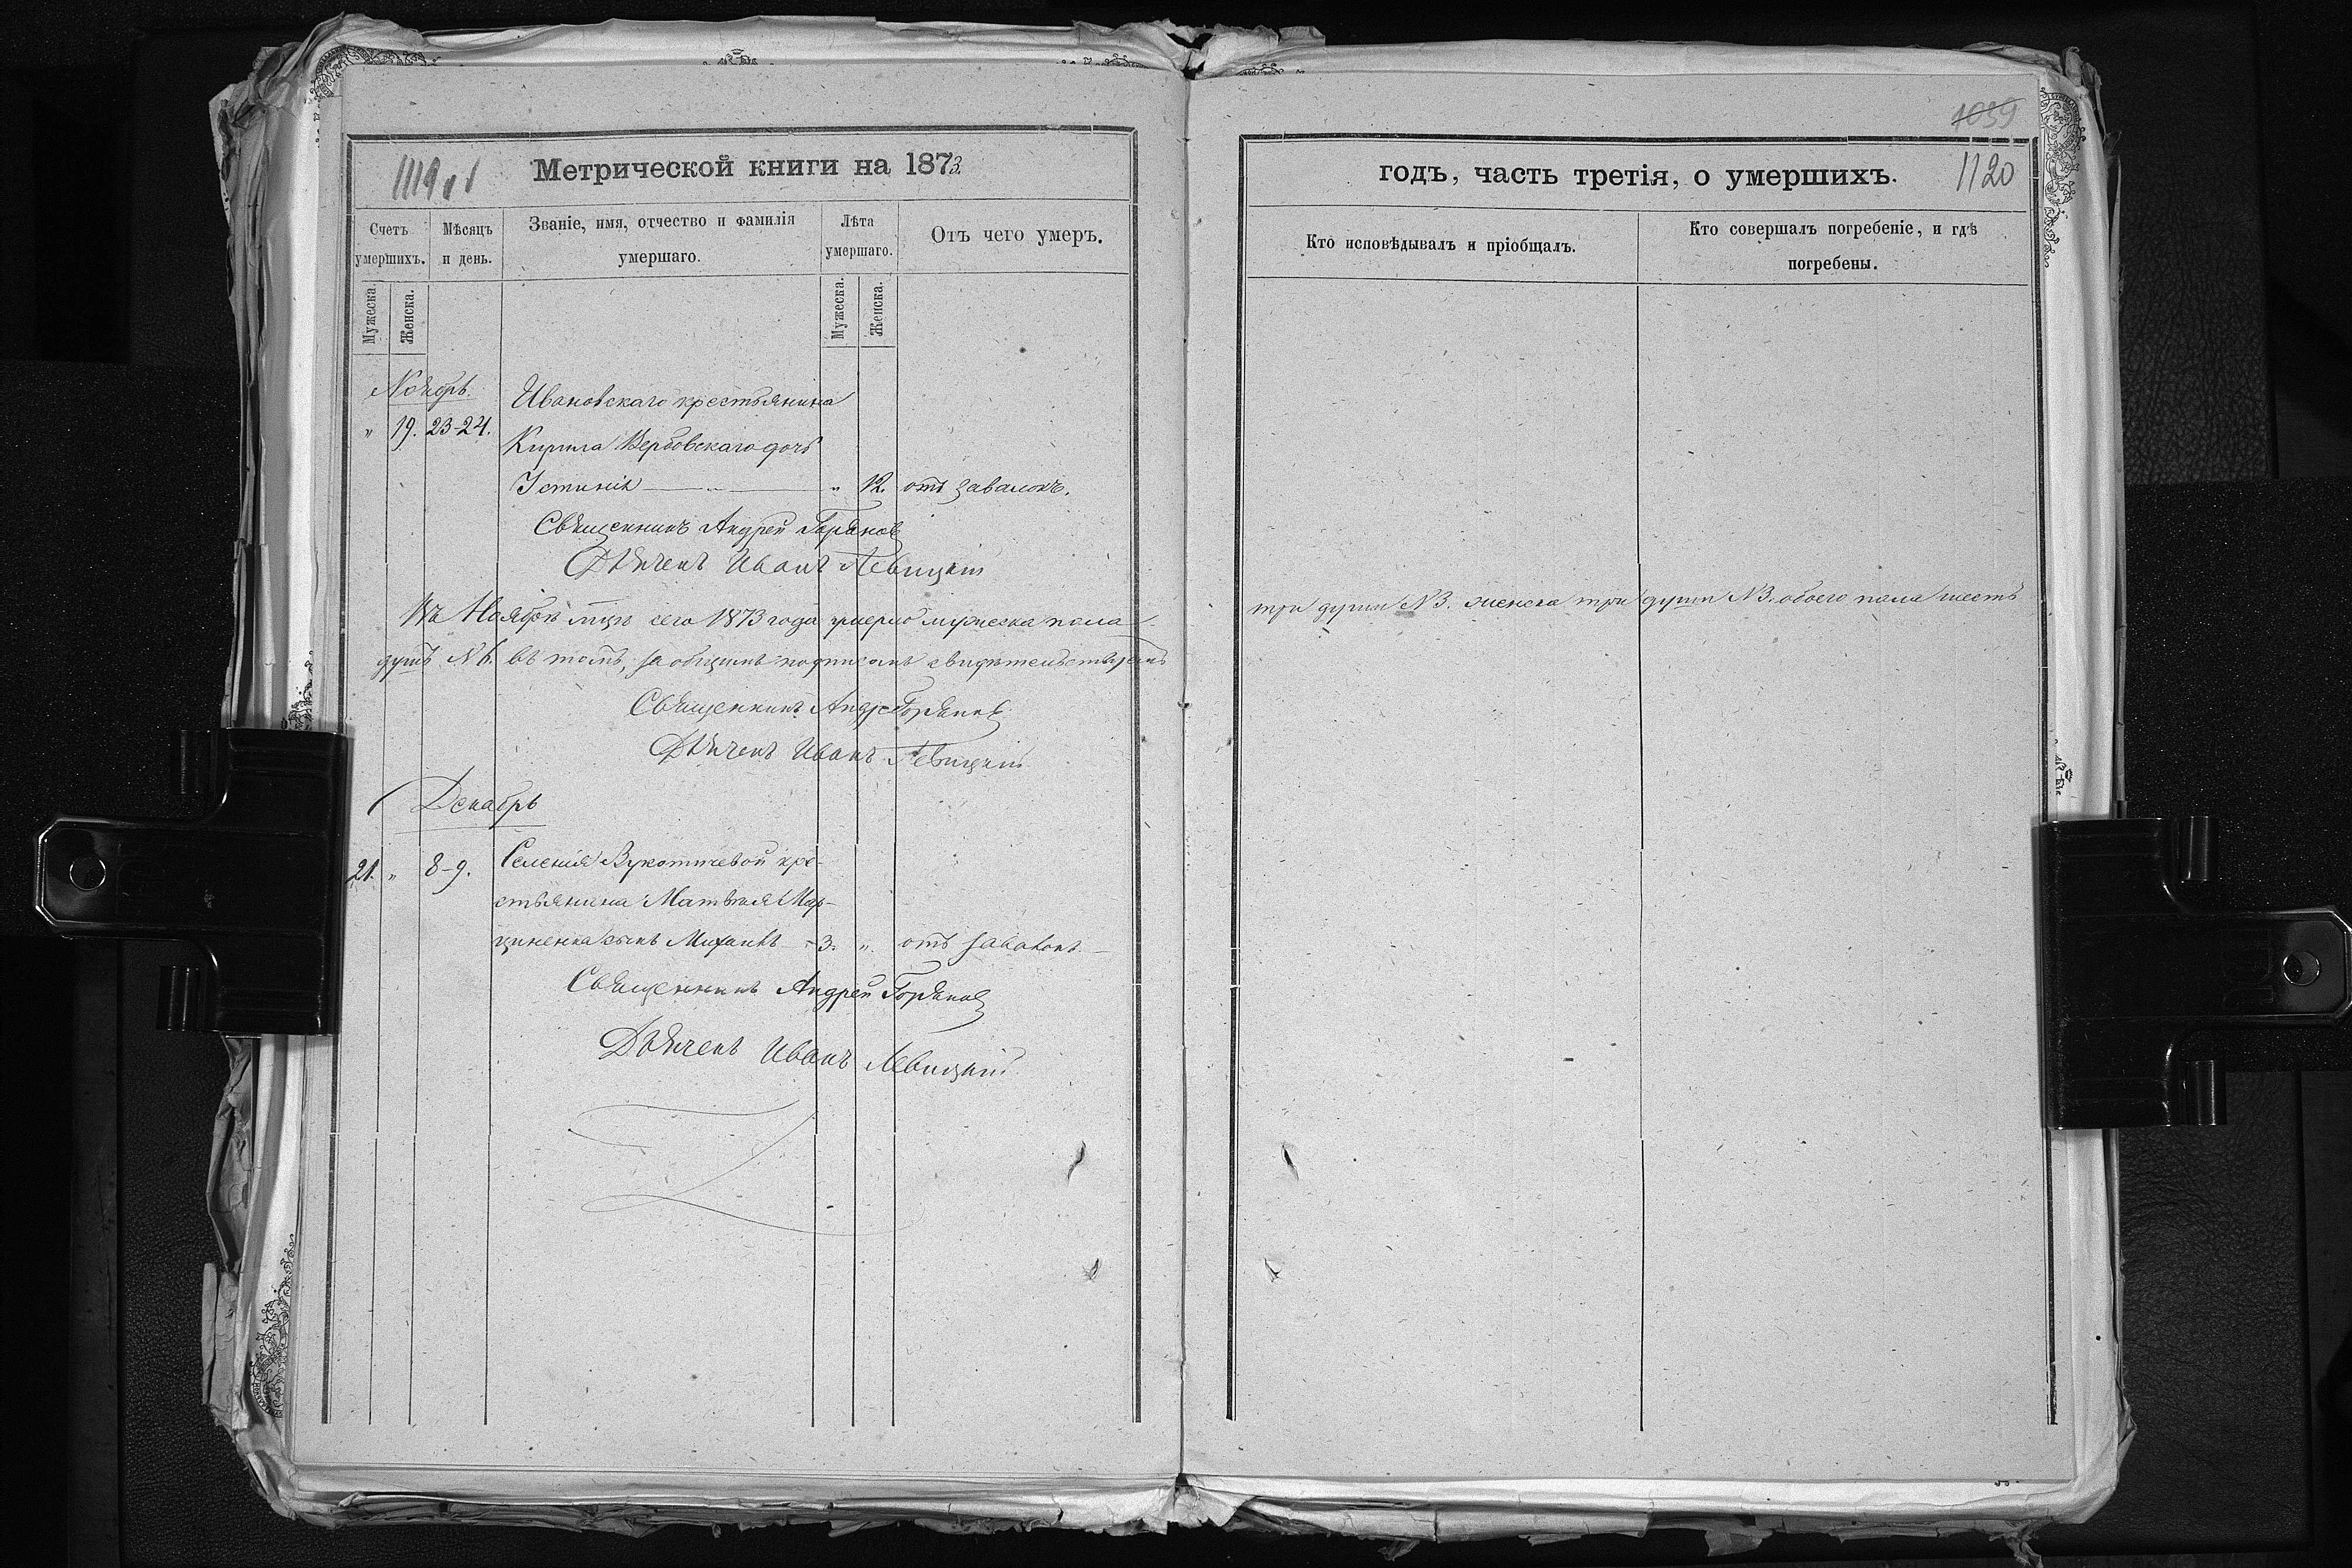 1039
1119 об
Метрической книги на 1873
годъ, часть третія, о умершихъ.
1120
Счетъ умершихъ.
Мѣсяцъ и день.
Званіе, имя, отчество и фамилія умершаго.
Лѣта умершаго.
Отъ чего умеръ.
Кто исповѣдывалъ и пріобщалъ.
Кто совершалъ погребеніе, и гдѣ погребены.
Мужеска.
Женска.
Мужеска.
Женска.
Ноябрь.
Ивановскаго крестьянина
" 19. 23-24.
Кирила Вербовскаго дочь
Устинія " 12. отъ завалокъ.
Священникъ Андрей Горянов
Дьячекъ Иванъ Левицкій
Въ Ноябрѣ мцѣ сего 1873 года умерло мужеска пола три души №3. женска три души №3. обоего пола шесть
душъ №6. въ томъ, за общимъ подписомъ свидѣтельствуемъ
Священникъ Андре Горянов
Дьячекъ Иванъ Левицкій
Декабрь
21. " 8-9. Селенія Вукотичевой кре-
стьянина Матвѣя Мар-
циненка сынъ Михаилъ - 3. " отъ завалокъ.
Священникъ Андрей Горянов
Дьячекъ Иванъ Левицкій